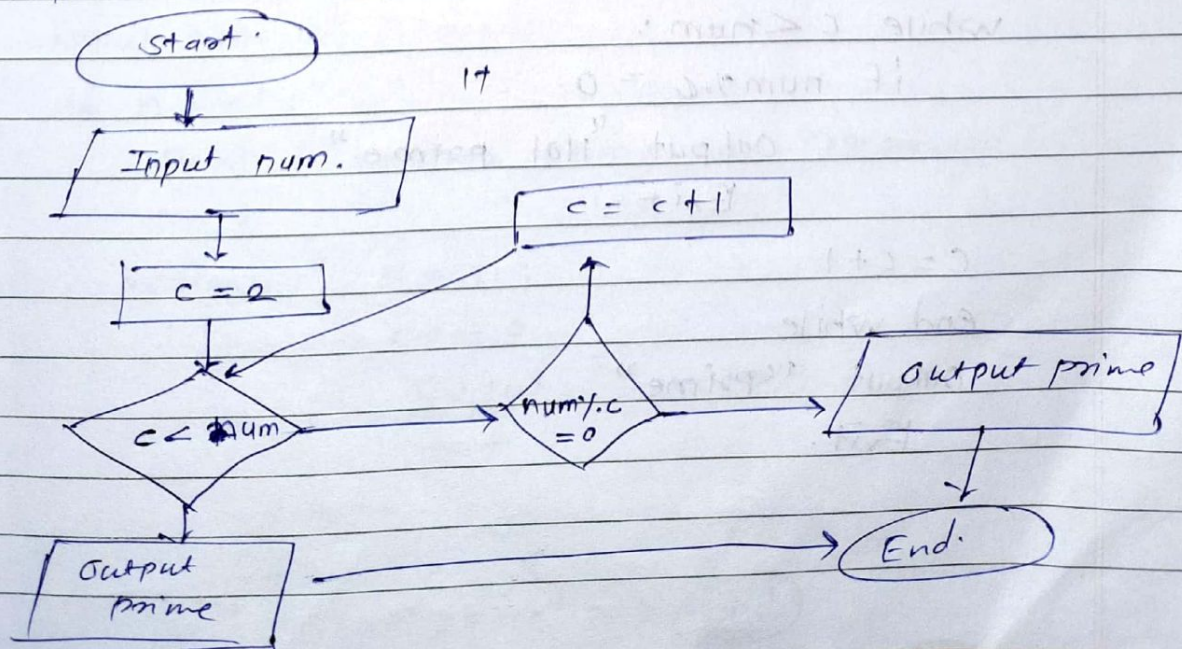 Start.
It
Input num.
c = c + 1
c = 2
c < num
num%.c
= 0
output prime
Output
prime
End.